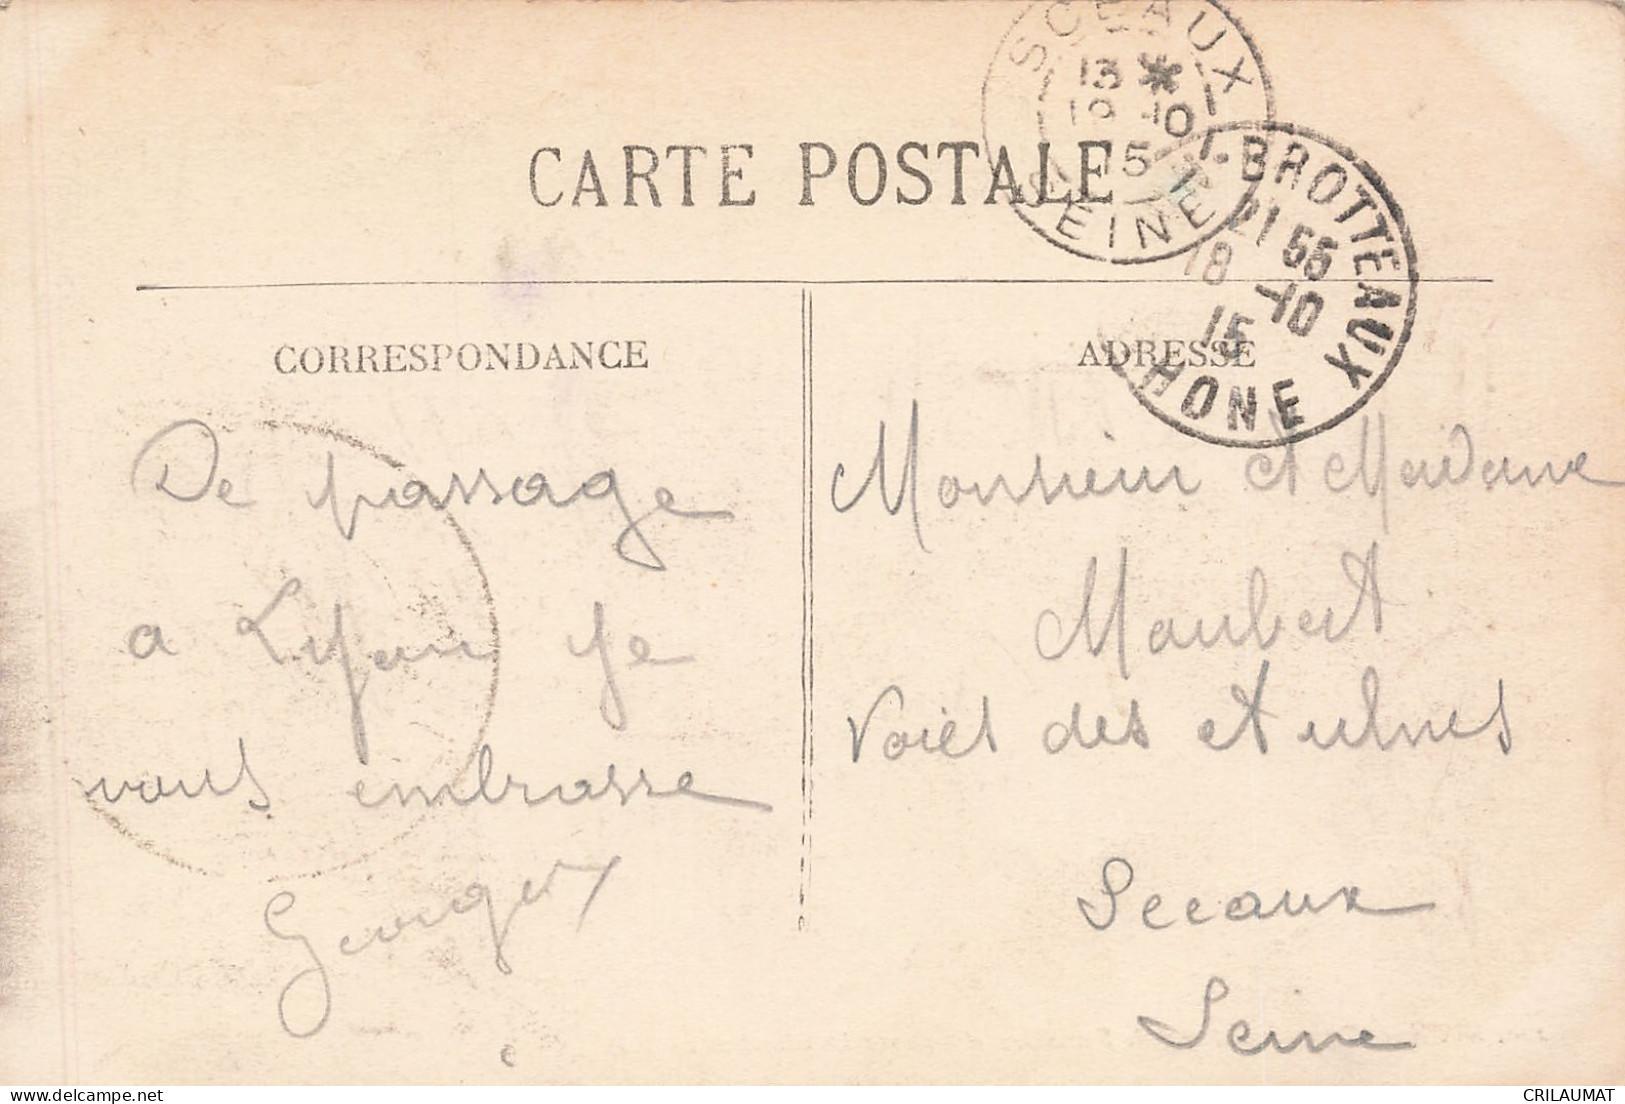 SCEAUX
13 *
10
15
SEINE
CARTE POSTALE
BROTTEAUX
21 55
18 -10
15
RHONE
CORRESPONDANCE
De passage
a Lyon je
vous embrasse
Georges
ADRESSE
Monsieur et Madame
Maubert
Voies des Aulnes
Sceaux
Seine
delcampe.net
CRILAUMAT